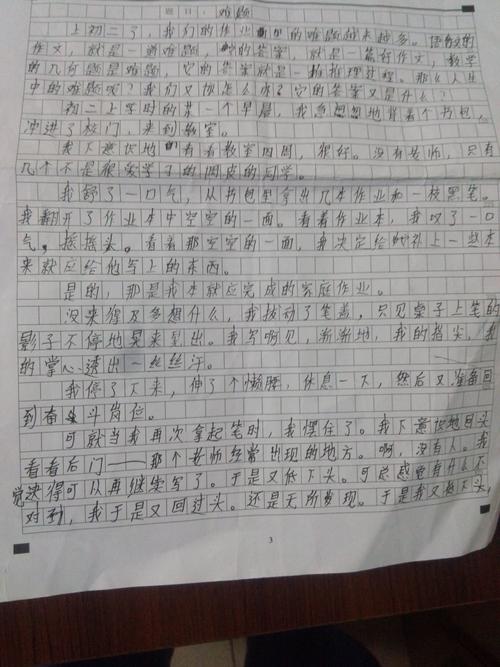 题目：难题
上初二了，我们的作业里的难题越来越多。语文的
作文，就是一道难题，的答案，就是一篇好作文，数学
的几何题是难题，它的答案就是一推理过程。那么人生
中的难题呢？我们又切怎么办？它的答案又是什么？
初二上学时的某一个早晨，我急匆匆地背着个书包，
冲进了校门，来到教室。
我下意识地看看教室四周，很好。没有老师，只有
几个不是很爱学习的调皮的同学。
我舒了一口气，从书包里拿出几本作业和一枝黑笔。
我翻开了作业本中空空的一面。看着作业本，我叹了一口
气，摇摇头。看着那空空的一面，我决定给补上一些本
来就应给他写上的东西。
是的，那是我本就应完成的家庭作业。
没来得及多想什么，我拔动了笔盖，只见桌子上笔的
影子不停地晃来晃出。我写啊见，渐渐地，我的指尖，我
的掌心透出一丝丝汗。
我停了下来，伸了个懒腰，休息一下，然后又准备回
到奋斗岗位。
可就当我再次拿起笔时，我摆住了。我下意识地回头
看看后门——那个教师经常出现的地方。啊，没有人。我
觉得可以再继续写了。于是又低下头。可总感觉有什么不
对，我于是又回过头。还是无所发现。于是我又低下头，
3